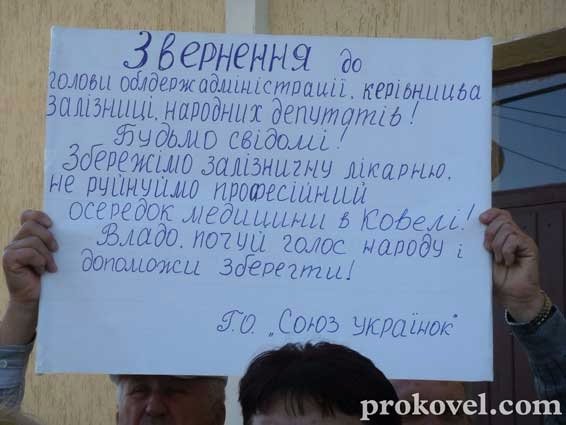 Звернення до
голови облдержадміністрації, керівництва
залізниці, народних депутатів!
Будьмо свідомі!
Збережімо залізничну лікарню,
не руйнуймо професійний
осередок медицини в Ковелі!
Владо, почуй голос народу і
допоможи зберегти!
Г.О. „Союз українок"
prokovel.com